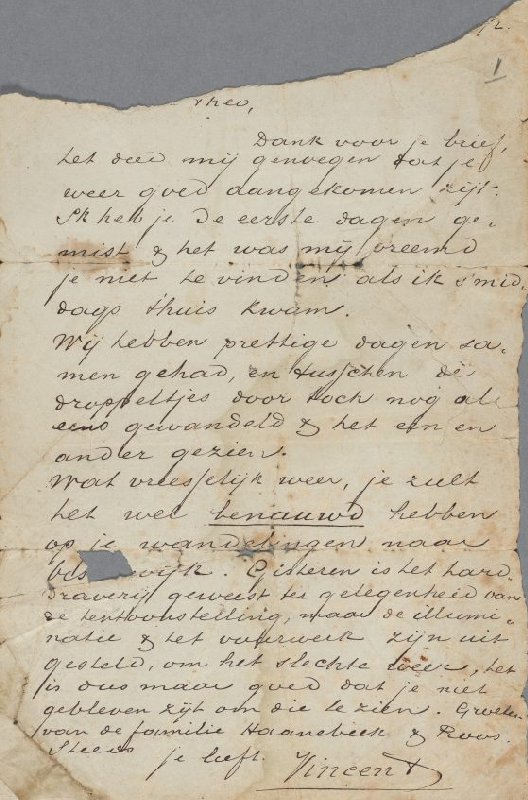 72.
1
Theo,
Dank voor je brief,
het deed mij genoegen dat je
weer goed aangekomen zijt.
Ik heb je de eerste dagen ge-
mist & het was mij vreemd
je niet te vinden als ik s'mid-
dags thuis kwam.
Wij hebben prettige dagen sa-
men gehad, en tusschen de
droppeltjes door toch nog al
eens gewandeld & het een en
ander gezien.
Wat vreesselijk weer, je zult
het wel benauwd hebben
op je wandelingen naar
wijk. Gisteren is het hard-
draverij geweest ter gelegenheid van
de tentoonstelling, maar de illumi-
natie & het vuurwerk zijn uit
gesteld, om het slechte weer, het
is dus maar goed dat je niet
gebleven zijt om die te zien. Groeten
van de familie Haanebeek & Roos.
Steeds
je liefh.
Vincent